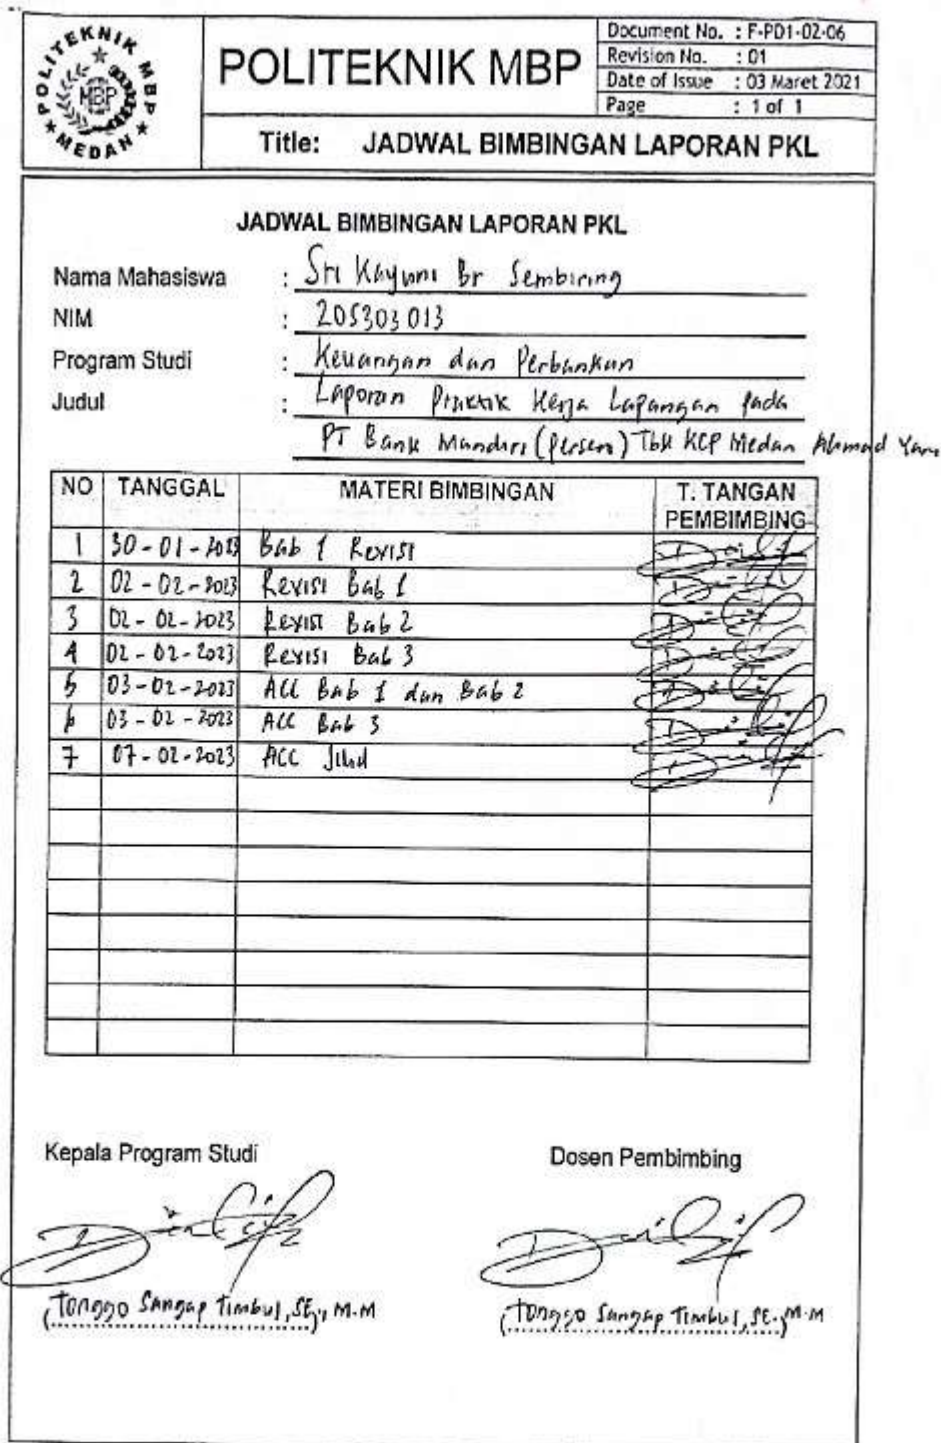 POLITEKNIK MBP
* MEDAN *
MBP
POLITEKNIK MBP
Document No. : F-PD1-02-06
Revision No. : 01
Date of Issue : 03 Maret 2021
Page : 1 of 1
Title: JADWAL BIMBINGAN LAPORAN PKL
JADWAL BIMBINGAN LAPORAN PKL
Nama Mahasiswa : Sri Kayuni Br Sembiring
NIM : 205303013
Program Studi : Keuangan dan Perbankan
Judul : Laporan Praktik Kerja Lapangan pada
PT Bank Mandiri (Persero) Tbk KCP Medan Ahmad Yani
NO TANGGAL MATERI BIMBINGAN T. TANGAN PEMBIMBING
1 30-01-2023 Bab 1 Revisi
2 02-02-2023 Revisi Bab 1
3 02-02-2023 Revisi Bab 2
4 02-02-2023 Revisi Bab 3
5 03-02-2023 ACC Bab 1 dan Bab 2
6 03-02-2023 ACC Bab 3
7 07-02-2023 ACC Jilid
Kepala Program Studi Dosen Pembimbing
(Tonggo Sangap Timbul, SE., M.M (Tonggo Sangap Timbul, SE.,) M.M